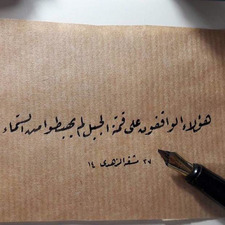 هؤلاء الواقفون على قمة الجبل لم يهبطوا من السماء
٢٧ شفر ١٤